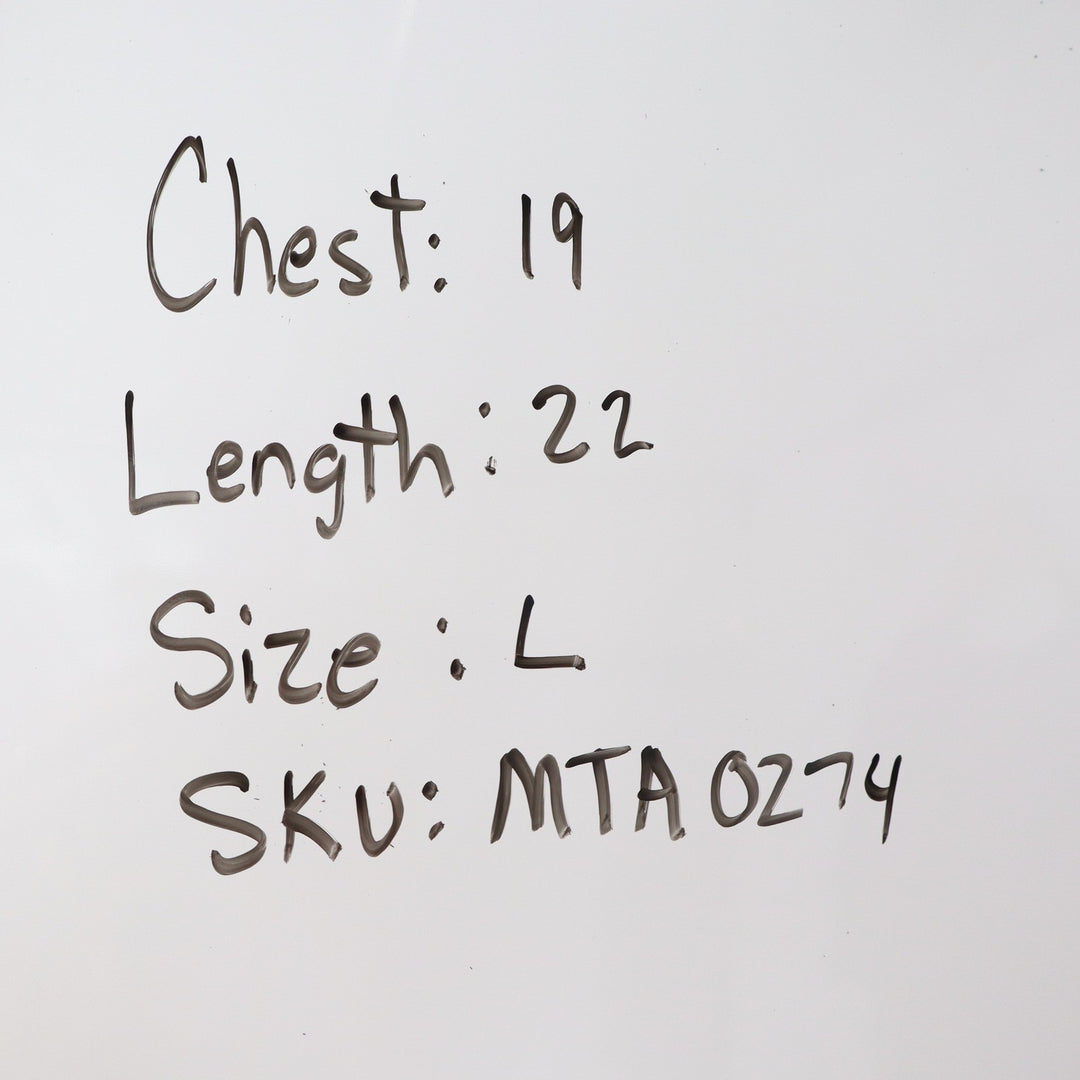 Chest: 19
Length: 22
Size: L
SKU: MTA 0274